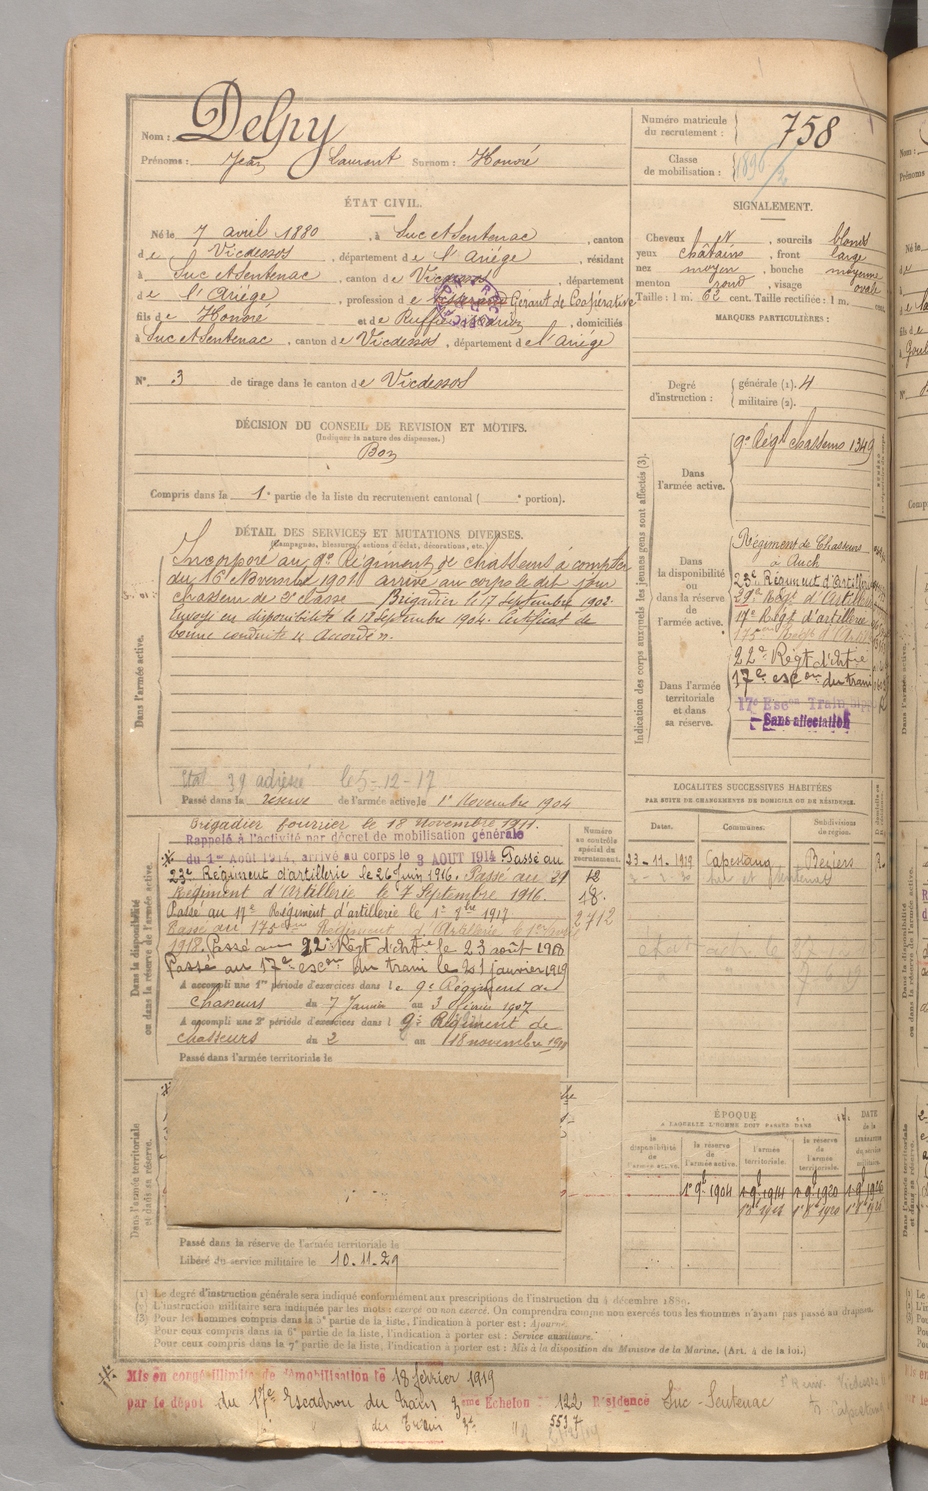 Nom : Delpy
Prénoms : Jean Laurent Surnom : Honoré
Numéro matricule du recrutement : 758
Classe de mobilisation : 1896/2
ÉTAT CIVIL.
Né le 7 avril 1880, à Suc et Sentenac, canton
de Vicdessos, département de l'Ariège, résidant
à Suc et Sentenac, canton de Vicdessos, département
de l'Ariège, profession de Gérant de Coopérative
fils de Honoré et de Ruffié, domiciliés
à Suc et Sentenac, canton de Vicdessos, département de l'Ariège
N° 3 de tirage dans le canton de Vicdessos
SIGNALEMENT.
Cheveux N, sourcils blonds
yeux châtains, front large
nez moyen, bouche moyenne
menton rond, visage ovale
Taille : 1 m. 62 cent. Taille rectifiée : 1 m. cent.
MARQUES PARTICULIÈRES :
Degré d'instruction : générale (1). 4
militaire (2).
DÉCISION DU CONSEIL DE REVISION ET MOTIFS.
(Indiquer la nature des dispenses.)
Bon
Compris dans la 1e partie de la liste du recrutement cantonal ( e portion).
DÉTAIL DES SERVICES ET MUTATIONS DIVERSES.
(Campagnes, blessures, actions d'éclat, décorations, etc.)
Dans l'armée active.
Incorporé au 9e Régiment de chasseurs à compter
du 16 Novembre 1901 arrivé au corps le dit jour
chasseur de 2e classe Brigadier le 17 Septembre 1903.
Envoyé en disponibilité le 18 Septembre 1904. Certificat de
bonne conduite accordé.
Etat 39 adressé le 5-12-17
Passé dans la réserve de l'armée active le 1er Novembre 1904
Dans la disponibilité ou dans la réserve de l'armée active.
Brigadier fourrier le 18 Novembre 1911.
Rappelé à l'activité par décret de mobilisation générale
du 1er Août 1914, arrivé au corps le 3 AOUT 1914 Passé au
23e Régiment d'artillerie le 26 Juin 1916. Passé au 29
Régiment d'Artillerie le 7 Septembre 1916.
Passé au 17e Régiment d'artillerie le 1er 8bre 1917
Passé au 175ème Régiment d'Artillerie le 1er
1918. Passé au 22e Régt d'Artie le 23 août 1918
Passé au 17e escon du train le 21 janvier 1919
A accompli une 1re période d'exercices dans le 9e Régiment de
chasseurs du 7 Janvier au 3 février 1907
A accompli une 2e période d'exercices dans l 9e Régiment de
chasseurs du 2 au 18 novembre
Passé dans l'armée territoriale le
Numéro au contrôle spécial du recrutement.
12
18
2712
Dans l'armée territoriale et dans sa réserve.
Passé dans la réserve de l'armée territoriale le
Libéré du service militaire le 10.11.29
Indication des corps auxquels les jeunes gens sont affectés (3).
Dans l'armée active.
9e Régt chasseurs 1349
Dans la disponibilité ou dans la réserve de l'armée active.
Régiment de Chasseurs
à Auch
23e Régiment d'artillerie
29e Régt d'Artillerie
17e Régt d'artillerie
22e Régt d'Artie
Dans l'armée territoriale et dans sa réserve.
17e escon du train
17e Escon Train
Sans affectation
LOCALITÉS SUCCESSIVES HABITÉES
PAR SUITE DE CHANGEMENTS DE DOMICILE OU DE RÉSIDENCE.
Dates. Communes. Subdivisions de région.
23-11.1919 Capestang Béziers R
ÉPOQUE
A LAQUELLE L'HOMME DOIT PASSER DANS
DATE de la LIBÉRATION du service militaire.
la disponibilité de l'armée active. la réserve de l'armée active. l'armée territoriale. la réserve de l'armée territoriale.
1er 9b 1904 1er 9b 1914 1er 9b 1920 1er 9b 1926
(1) Le degré d'instruction générale sera indiqué conformément aux prescriptions de l'instruction du 4 décembre 1889.
(2) L'instruction militaire sera indiquée par les mots : exercé ou non exercé. On comprendra comme non exercés tous les hommes n'ayant pas passé au drapeau.
(3) Pour les hommes compris dans la 5e partie de la liste, l'indication à porter est : Ajourné.
Pour ceux compris dans la 6e partie de la liste, l'indication à porter est : Service auxiliaire.
Pour ceux compris dans la 7e partie de la liste, l'indication à porter est : Mis à la disposition du Ministre de la Marine. (Art. 4 de la loi.)
Mis en congé illimité de démobilisation le 18 février 1919
par le dépôt du 17e Escadron du Train 3eme Echelon 122 Résidence Suc-Sentenac
du Train 5537